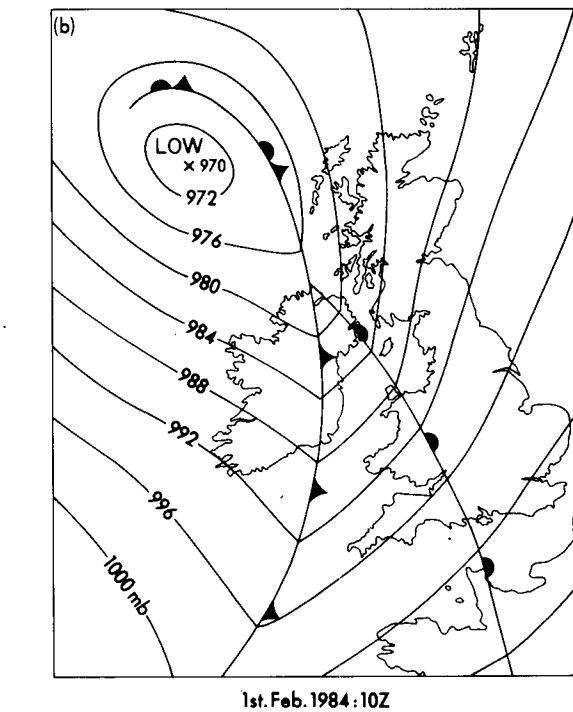 (b)
LOW
× 970
972
976
980
984
988
992
996
1000 mb
1st. Feb. 1984 : 10Z